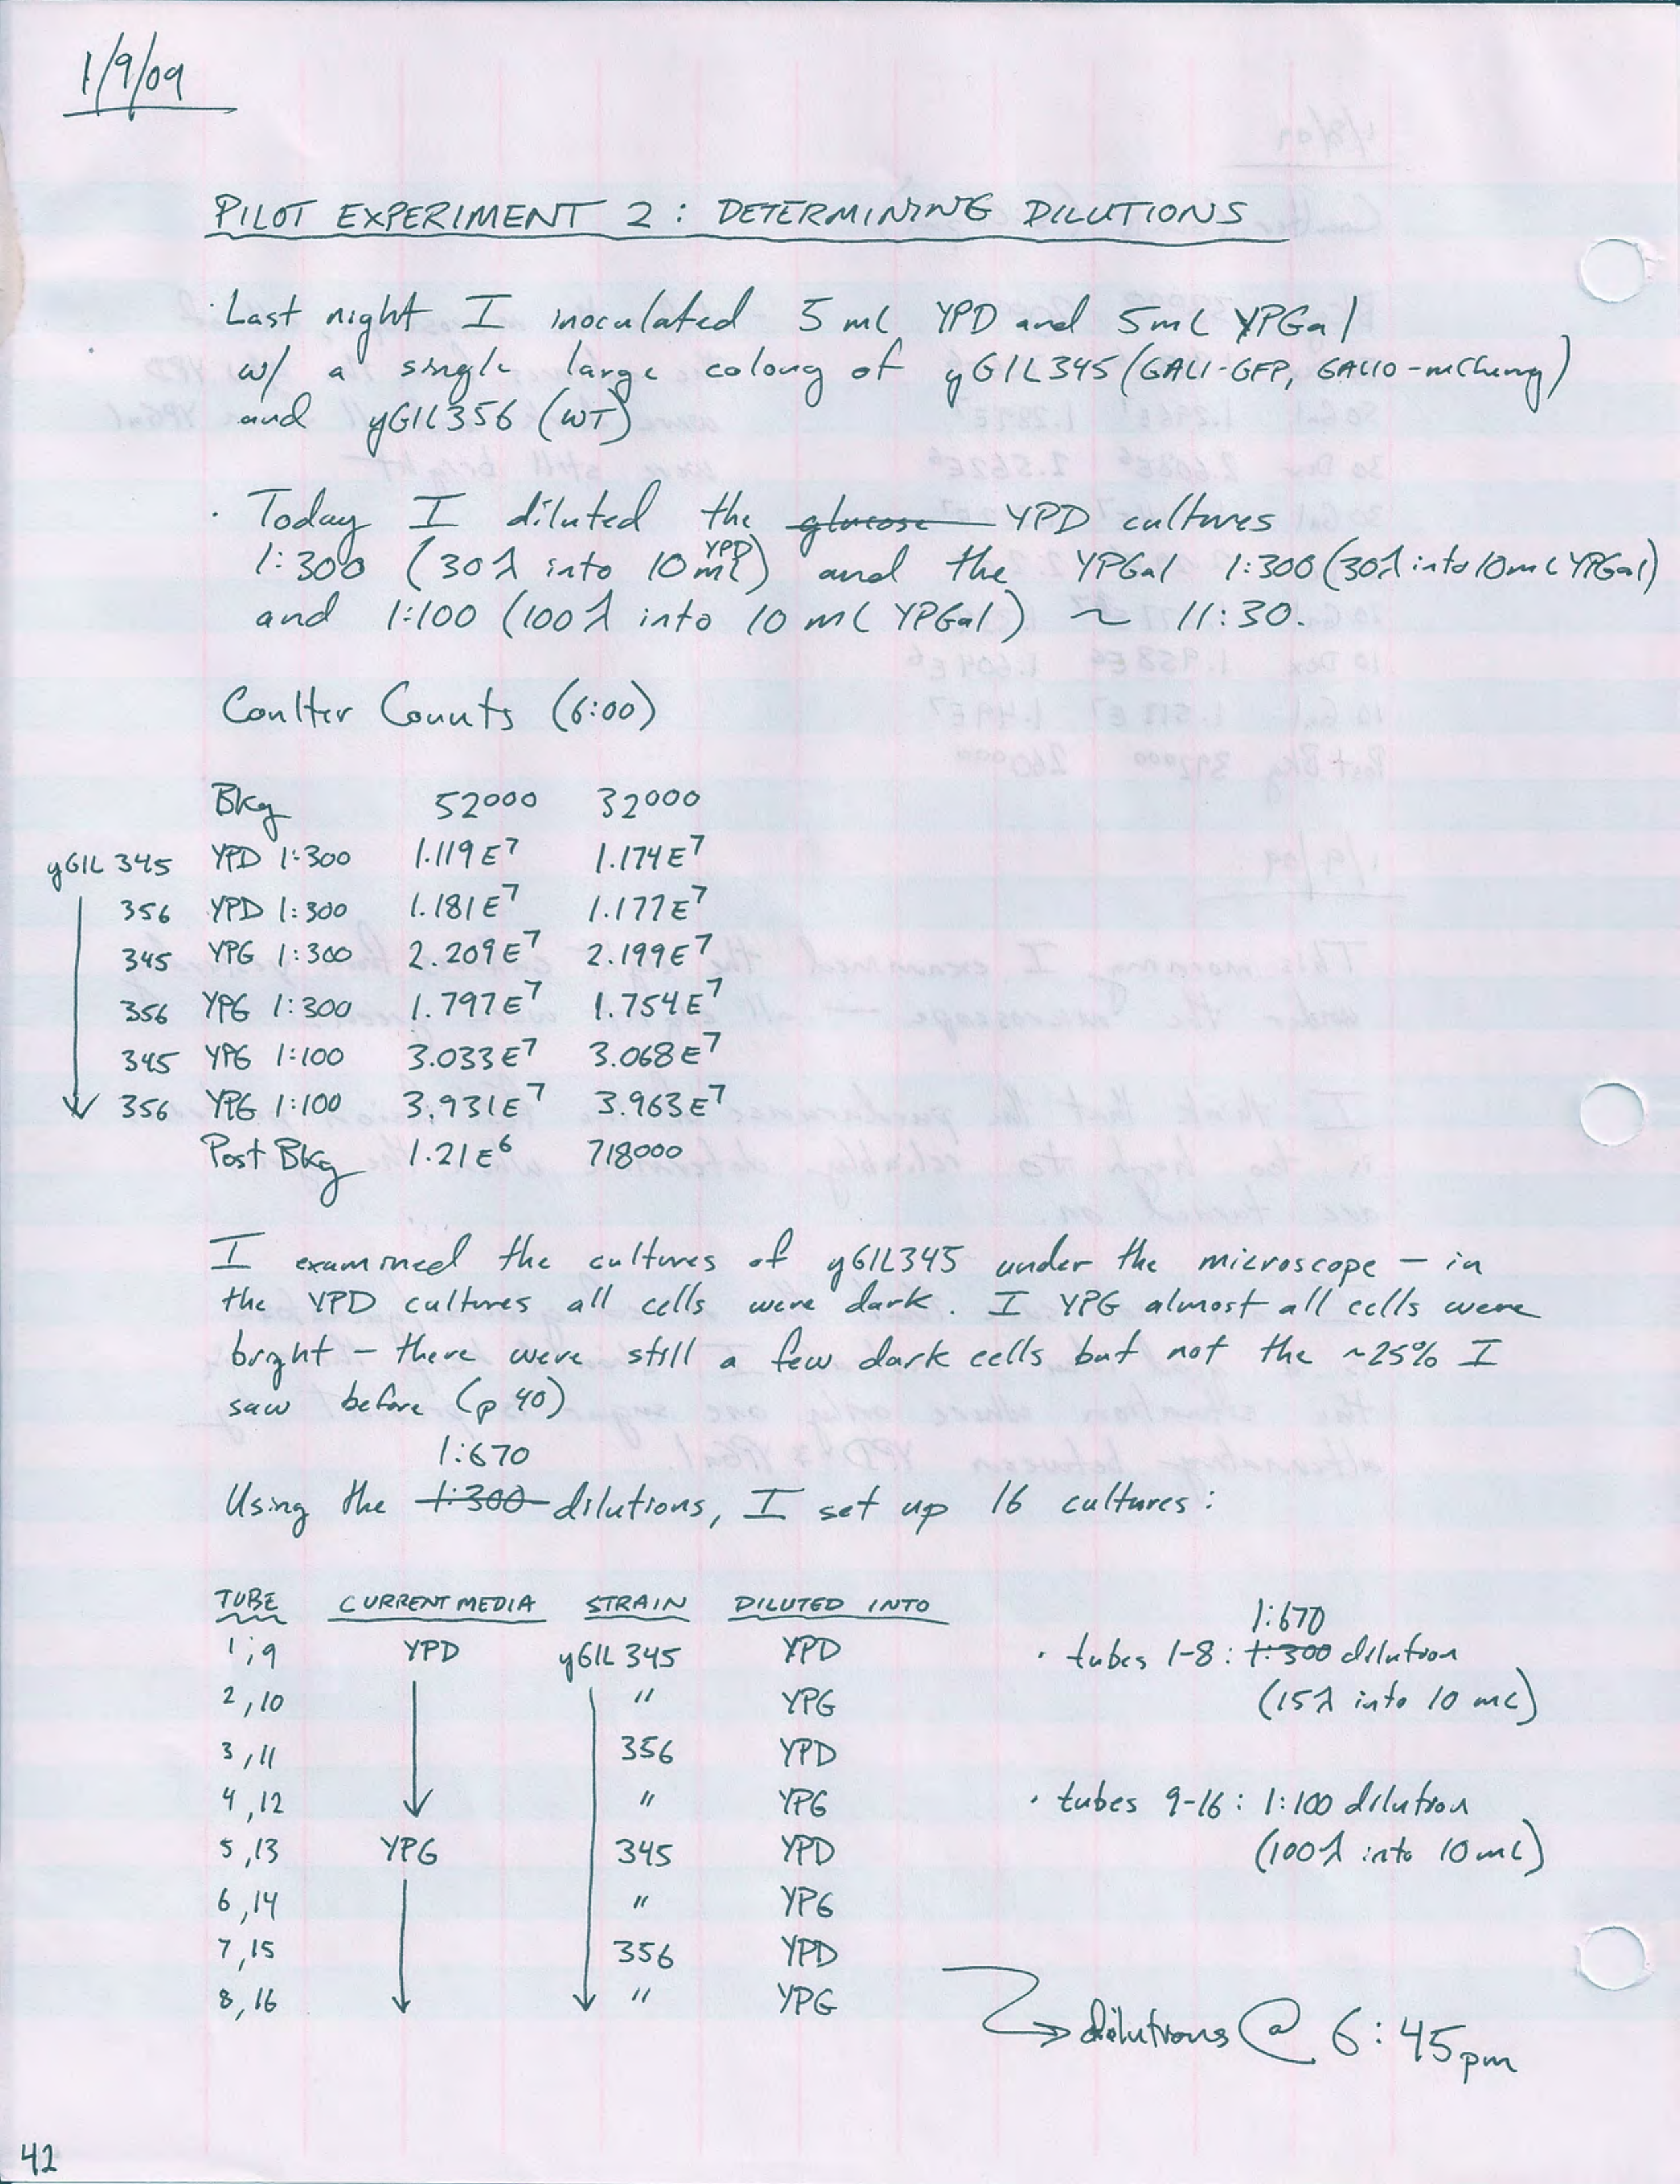 1/9/09
PILOT EXPERIMENT 2 : DETERMINING DILUTIONS
· Last night I inoculated 5 mL YPD and 5mL YPGal
w/ a single large colony of yGIL345 (GAL1-GFP, GAL10-mCherry)
and yGIL356 (WT)
· Today I diluted the glucose YPD cultures
1:300 (30λ into 10 mL YPD) and the YPGal 1:300 (30λ into 10mL YPGal)
and 1:100 (100λ into 10 mL YPGal) ~ 11:30.
Coulter Counts (6:00)
Bkg 52000 32000
yGIL 345 YPD 1:300 1.119E7 1.174E7
356 YPD 1:300 1.181E7 1.177E7
345 YPG 1:300 2.209E7 2.199E7
356 YPG 1:300 1.797E7 1.754E7
345 YPG 1:100 3.033E7 3.068E7
356 YPG 1:100 3.931E7 3.963E7
Post Bkg 1.21E6 718000
I examined the cultures of yGIL345 under the microscope – in
the YPD cultures all cells were dark. I YPG almost all cells were
bright – there were still a few dark cells but not the ~25% I
saw before (p 40)
1:670
Using the 1:300 dilutions, I set up 16 cultures:
TUBE CURRENT MEDIA STRAIN DILUTED INTO
1,9 YPD yGIL 345 YPD
2,10 " YPG
3,11 356 YPD
4,12 " YPG
5,13 YPG 345 YPD
6,14 " YPG
7,15 356 YPD
8,16 " YPG
1:670
· tubes 1-8: 1:300 dilution
(15λ into 10 mL)
· tubes 9-16: 1:100 dilution
(100λ into 10mL)
dilutions @ 6:45pm
42